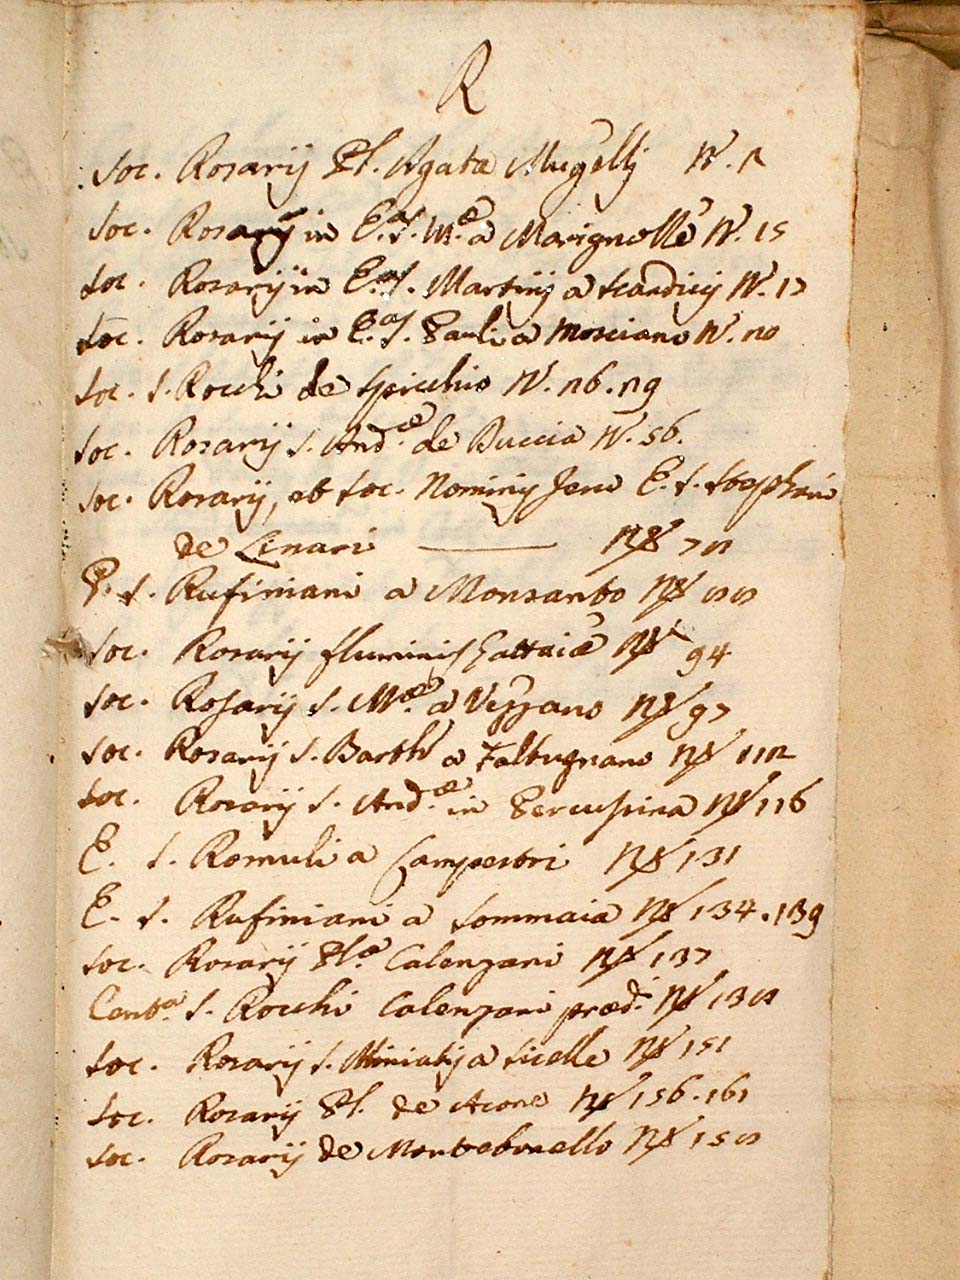 R
Soc. Rosarij Pl. Agatæ Mugelli N. 2
Soc. Rosarij in E.a S. M.æ a Marignolle N. 15
Soc. Rosarij in E.a S. Martinij a Scandicij N. 17
Soc. Rosarij in E.a S. Pauli a Mosciano N. 20
Soc. S. Rocchi de Spicchio N. 26. 29
Soc. Rosarij S. And.æ de Buccia N. 56.
Soc. Rosarij, et Soc. Nominis Jesu E. S. Stephani
de Linari — N. 72
P. S. Rufiniani a Monsanto N.
Soc. Rosarij fluminis Gattaiæ N. 94
Soc. Rosarij S. M.æ a Vezzano N. 97
Soc. Rosarij S. Barth. a Faltugnano N. 112
Soc. Rosarij S. And.æ in Percusina N. 116
E. S. Romuli a Campestri N. 131
E. S. Rufiniani a Sommaia N. 134. 139
Soc. Rosarij Pl.æ Calenzani N. 137
Cent.a S. Rocchi Calenzani præd. N. 138
Soc. Rosarij S. Miniatij a Sicelle N. 151
Soc. Rosarij Pl. de Acone N. 156. 161
Soc. Rosarij de Montebonello N. 158